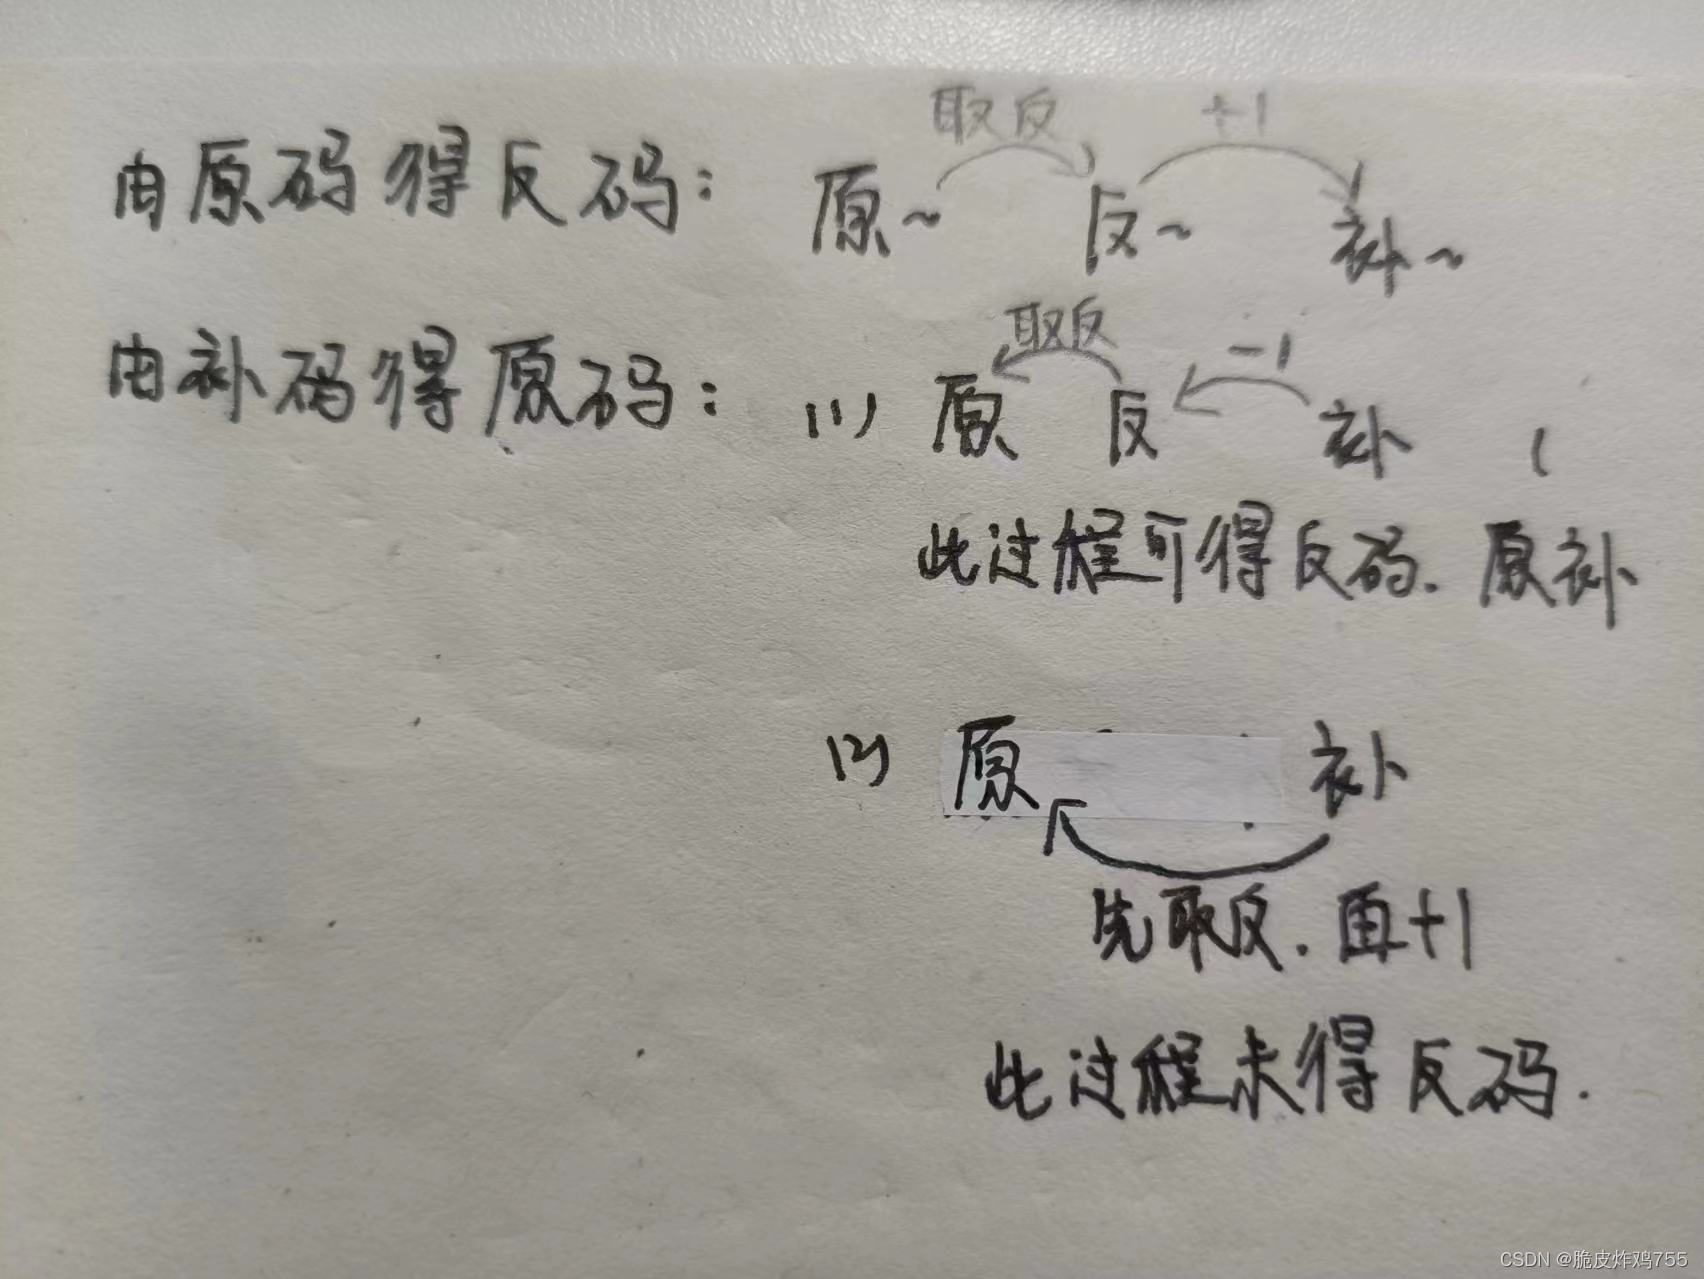 取反 +1
由原码得反码： 原~ 反~ 补~
取反 -1
由补码得原码： (1) 原 反 补 (
此过程可得反码. 原补
(2) 原 补
先取反. 再+1
此过程未得反码.
CSDN @脆皮炸鸡755